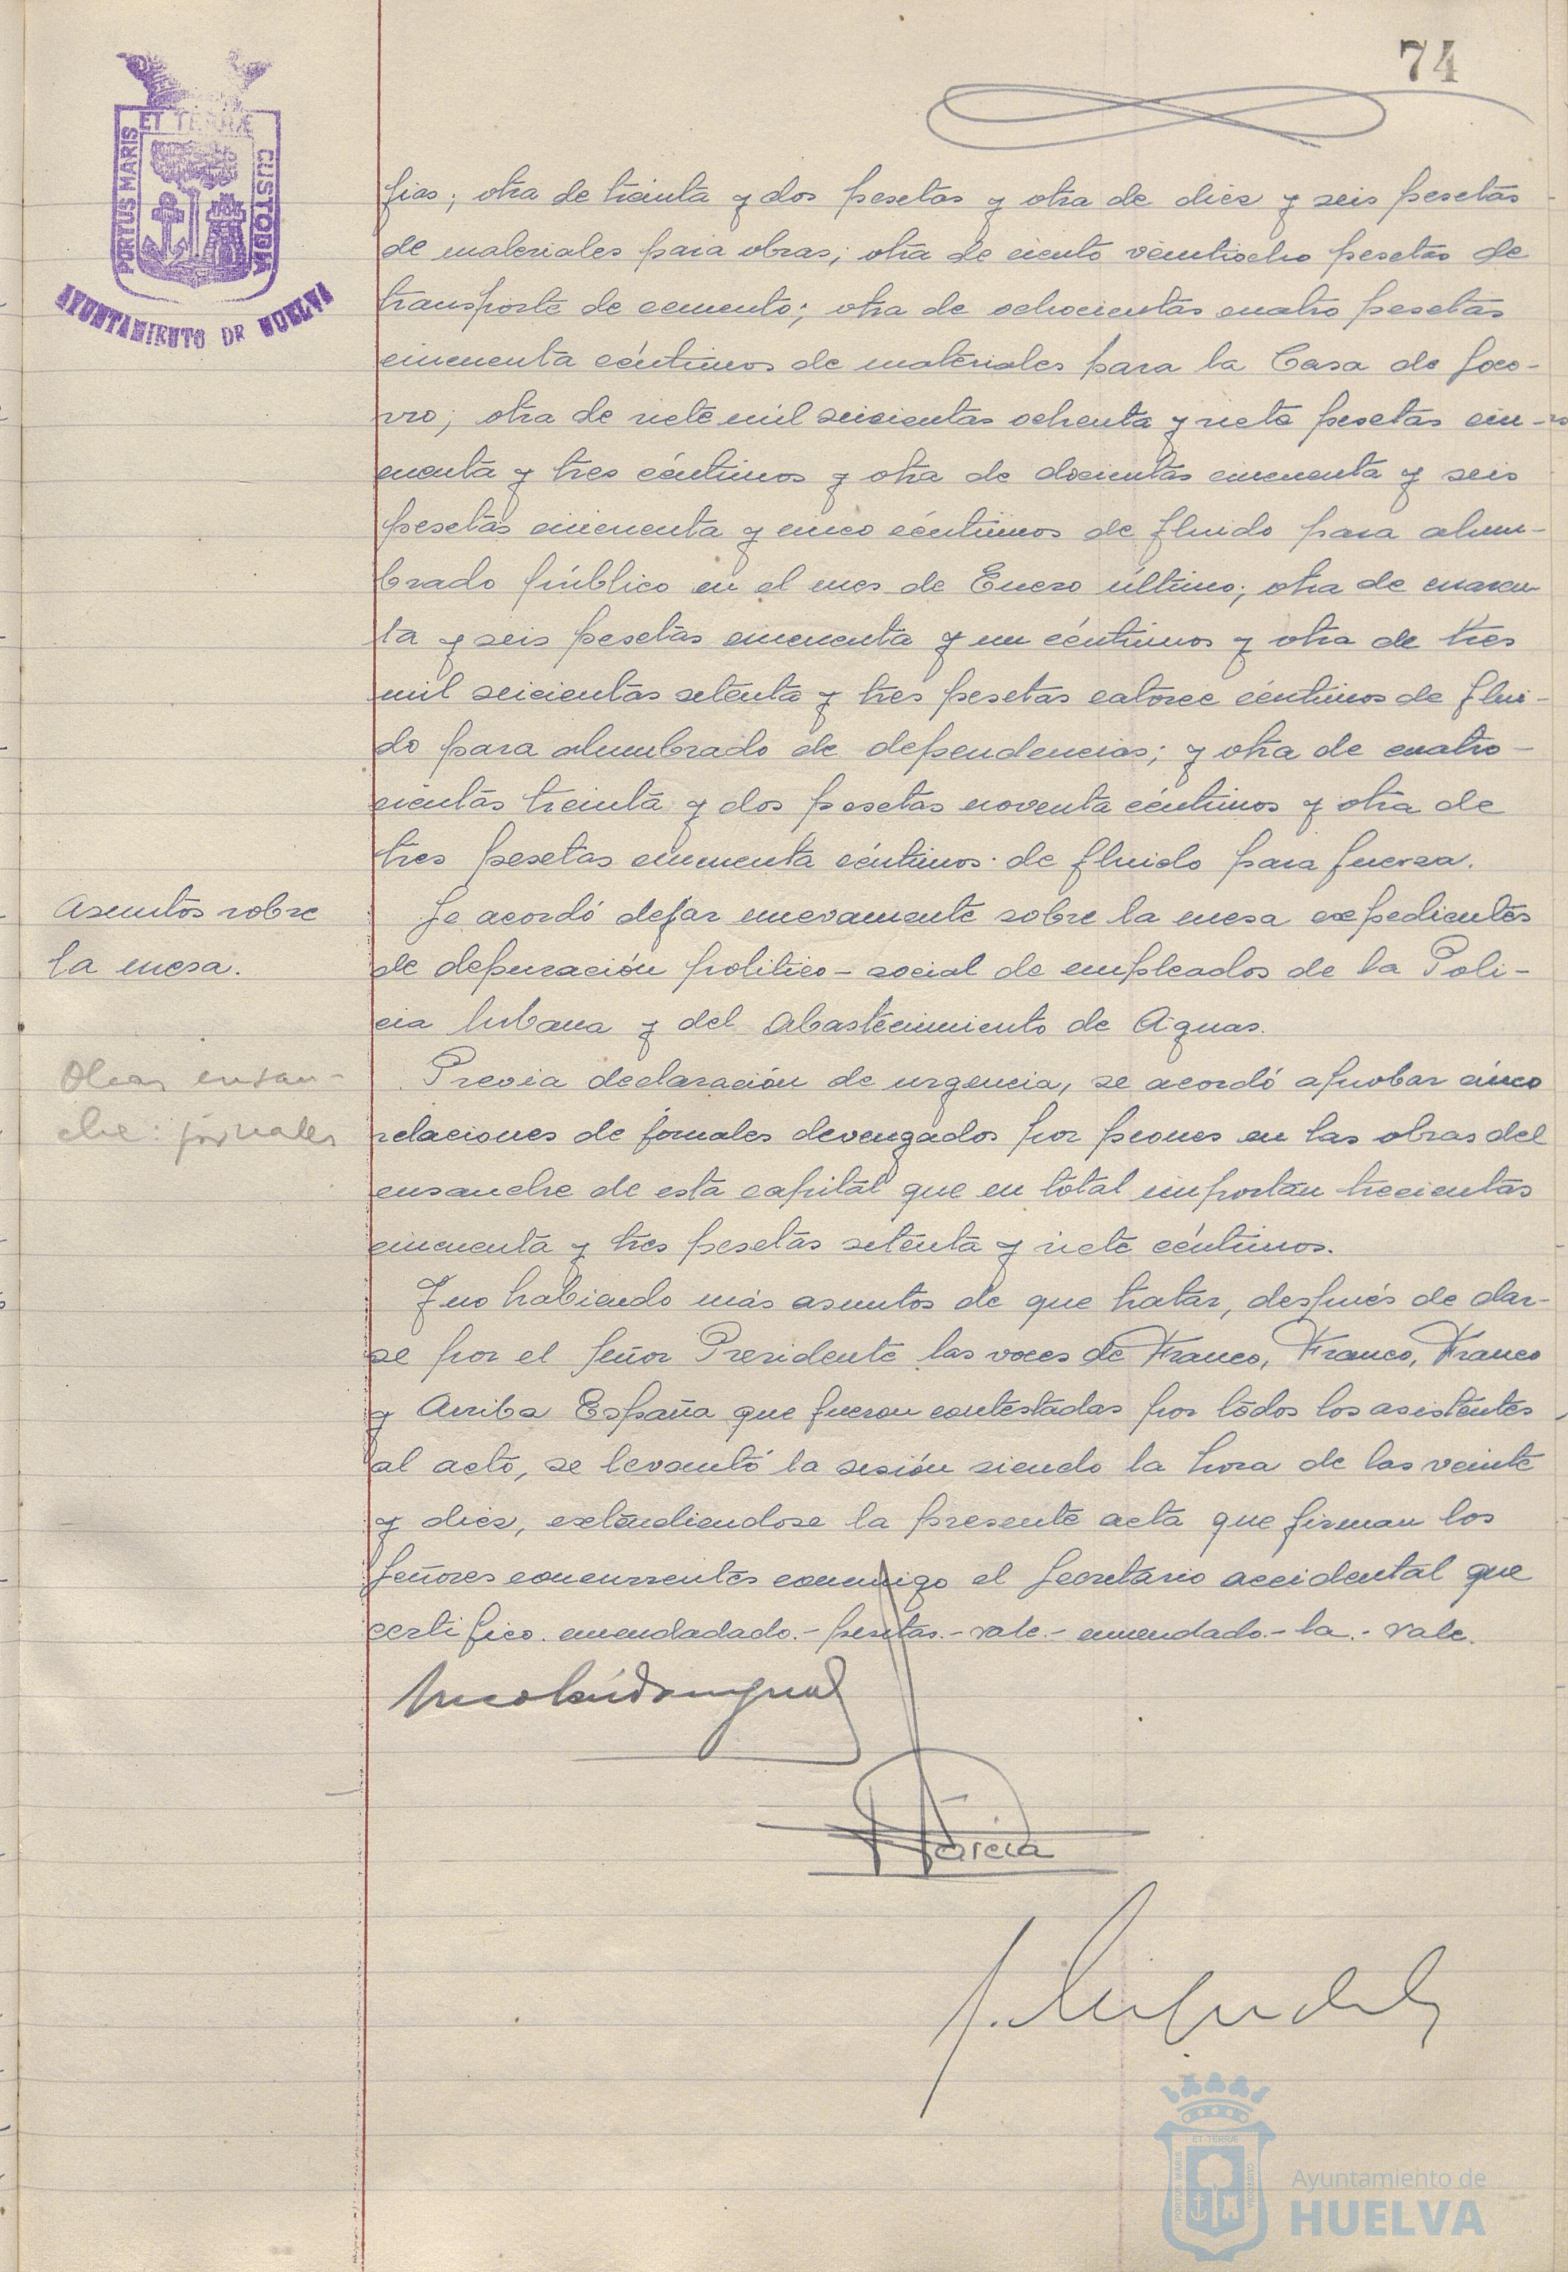 74
PORTUS MARIS ET TERRÆ CUSTODIA
AYUNTAMIENTO DE HUELVA
fias; otra de treinta y dos pesetas y otra de diez y seis pesetas
de materiales para obras; otra de ciento veintiocho pesetas de
transporte de cemento; otra de ochocientas cuatro pesetas
cincuenta céntimos de materiales para la Casa de Soco-
rro; otra de siete mil seiscientas ochenta y siete pesetas cin-
cuenta y tres céntimos y otra de docientas cincuenta y seis
pesetas cincuenta y cinco céntimos de fluido para alum-
brado público en el mes de Enero último; otra de cuaren
ta y seis pesetas cincuenta y un céntimos y otra de tres
mil seicientas setenta y tres pesetas catorce céntimos de flui-
do para alumbrado de dependencias; y otra de cuatro-
cientas treinta y dos pesetas noventa céntimos y otra de
tres pesetas cincuenta céntimos de fluido para fuerza.
Asuntos sobre
la mesa.
Se acordó dejar nuevamente sobre la mesa expedientes
de depuración politico-social de empleados de la Poli-
cia Urbana y del Abastecimiento de Aguas.
Obras ensan-
che: jornales
Previa declaración de urgencia, se acordó aprobar cinco
relaciones de jornales devengados por peones en las obras del
ensanche de esta capital que en total importan trecientas
cincuenta y tres pesetas setenta y siete céntimos.
Y no habiendo más asuntos de que tratar, después de dar-
se por el Señor Presidente las voces de Franco, Franco, Franco
y Arriba España que fueron contestadas por todos los asistentes
al acto, se levantó la sesión siendo la hora de las veinte
y diez, extendiendose la presente acta que firman los
Señores concurrentes conmigo el Secretario accidental que
certifico. enmendadado.- pesetas.- vale.- enmendado.- la.- vale.
García
PORTUS MARIS ET TERRÆ CUSTODIA
Ayuntamiento de
HUELVA